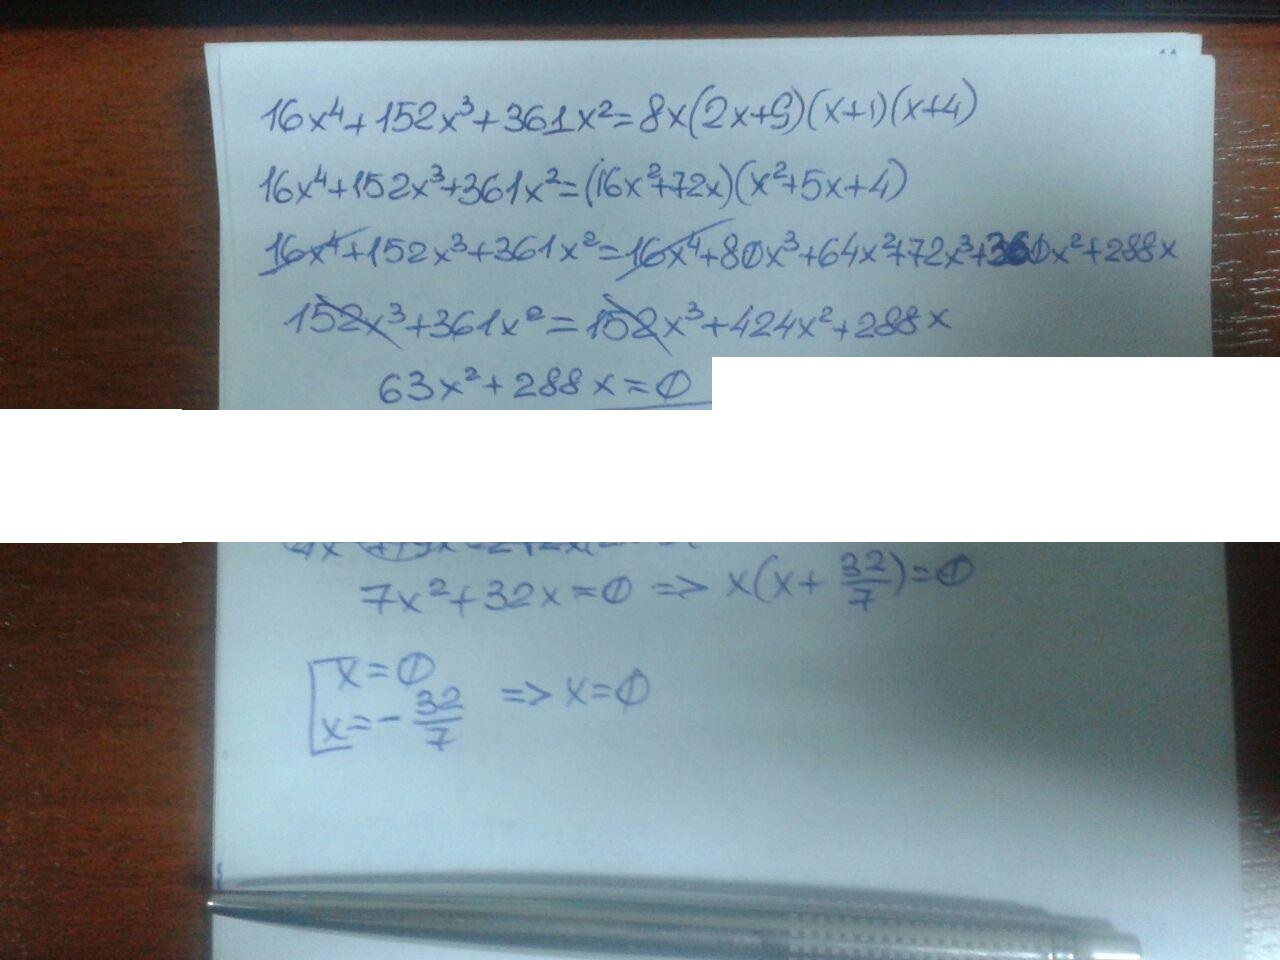 16x⁴+152x³+361x²=8x(2x+9)(x+1)(x+4)
16x⁴+152x³+361x²=(16x²+72x)(x²+5x+4)
16x⁴+152x³+361x²=16x⁴+80x³+64x²+72x³+360x²+288x
152x³+361x²=152x³+424x²+288x
63x²+288x=0
7x²+32x=0 => x(x+32/7)=0
x=0
x=-32/7 => x=0